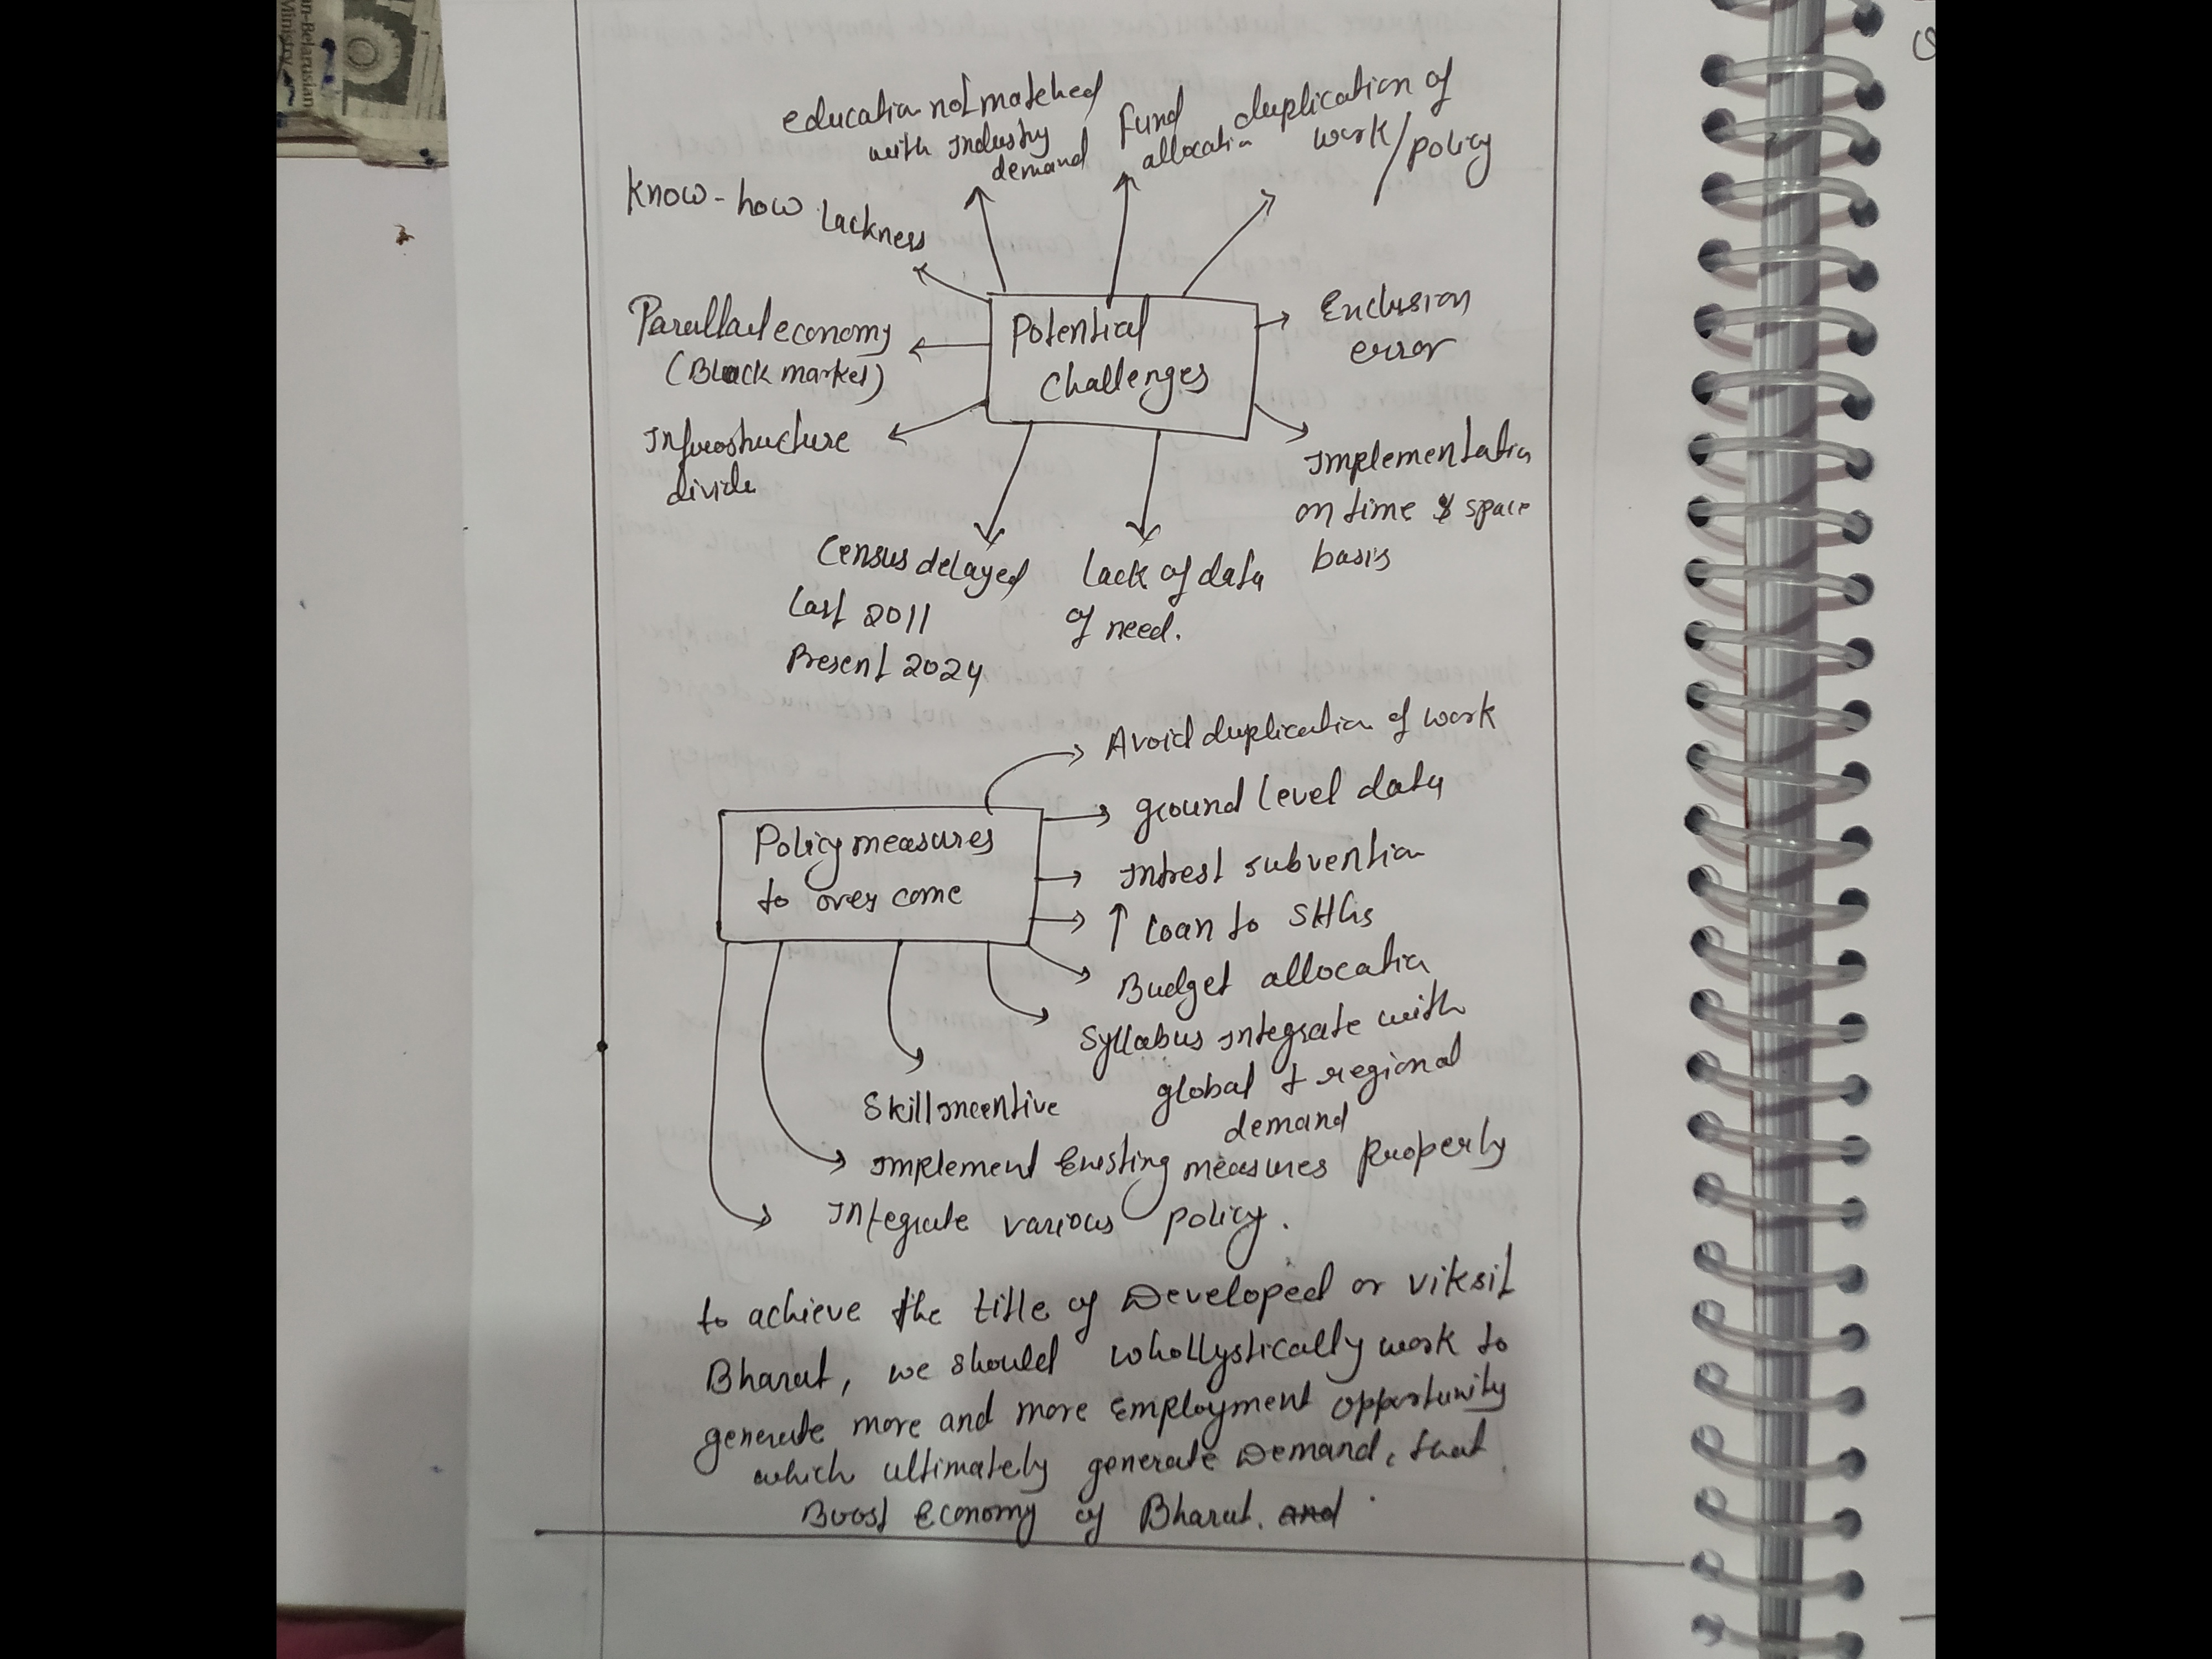 an-Belarusian
Ministry
education not matched
with Industry
demand
Fund
allocation
duplication of
work/policy
Know-how Lackness
Parallael economy
(Black market)
Potential
challenges
Exclusion
error
Infrastructure
divide
Implementation
on time & space
basis
Census delayed
Last 2011
Present 2024
lack of data
of need.
Avoid duplication of work
ground level data
Policy measures
to over come
Intrest subvention
↑ Loan to SHGs
Budget allocation
Syllabus integrate with
global & regional
demand
Skill incentive
Implement Existing measures Properly
Integrate various policy.
to achieve the title of Developed or viksit
Bharat, we should whollystically work to
generate more and more Employment opportunity
which ultimately generate Demand, that
Boost Economy of Bharat. and